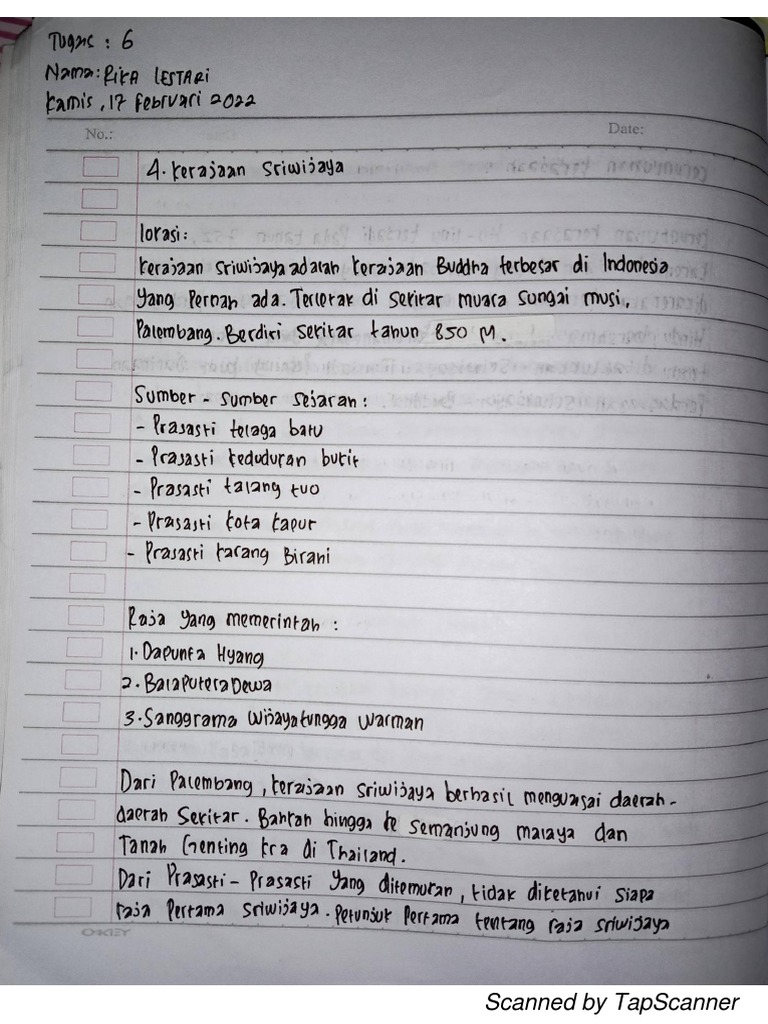 Tugas : 6
Nama: RIKA LESTARI
Kamis, 17 Februari 2022
No.:
Date:
4. Kerajaan Sriwijaya
lokasi:
Kerajaan Sriwijaya adalah Kerajaan Buddha terbesar di Indonesia
yang Pernah ada. Terletak di Sekitar muara sungai musi,
Palembang. Berdiri sekitar tahun 850 M.
Sumber - sumber sejarah :
- Prasasti telaga batu
- Prasasti Kedudukan bukit
- Prasasti talang tuo
- Prasasti kota kapur
- Prasasti karang Birahi
Raja yang memerintah :
1. Dapunta Hyang
2. Balaputera Dewa
3. Sanggrama Wijayatungga Warman
Dari Palembang, Kerajaan Sriwijaya berhasil menguasai daerah-
daerah Sekitar. Bahkan hingga ke Semanjung malaya dan
Tanah Genting Kra di Thailand.
Dari Prasasti - Prasasti yang ditemukan, tidak diketahui siapa
raja Pertama Sriwijaya. Petunjuk Pertama tentang raja sriwijaya
OKEY
Scanned by TapScanner